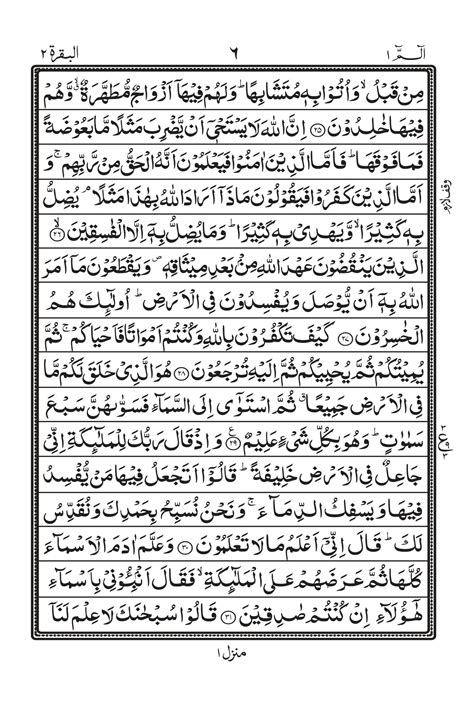 الٓمّٓ ۱ ٦ البقرة ۲
مِنْ قَبْلُ ۙ وَاُتُوْا بِهٖ مُتَشَابِهًا ؕ وَلَهُمْ فِيْهَاۤ اَزْوَاجٌ مُّطَهَّرَةٌ ۙ وَّهُمْ
فِيْهَا خٰلِدُوْنَ ﴿۲۵﴾ اِنَّ اللّٰهَ لَا يَسْتَحْیٖۤ اَنْ يَّضْرِبَ مَثَلًا مَّا بَعُوْضَةً
فَمَا فَوْقَهَا ؕ فَاَمَّا الَّذِيْنَ اٰمَنُوْا فَيَعْلَمُوْنَ اَنَّهُ الْحَقُّ مِنْ رَّبِّهِمْ ۚ وَ
اَمَّا الَّذِيْنَ كَفَرُوْا فَيَقُوْلُوْنَ مَاذَاۤ اَرَادَ اللّٰهُ بِهٰذَا مَثَلًا ۘ يُضِلُّ
وقف لازم
بِهٖ كَثِيْرًا ۙ وَّيَهْدِیْ بِهٖ كَثِيْرًا ؕ وَمَا يُضِلُّ بِهٖۤ اِلَّا الْفٰسِقِيْنَ ﴿۲۶﴾ ۙ
الَّذِيْنَ يَنْقُضُوْنَ عَهْدَ اللّٰهِ مِنْۢ بَعْدِ مِيْثَاقِهٖ ۪ وَيَقْطَعُوْنَ مَاۤ اَمَرَ
اللّٰهُ بِهٖۤ اَنْ يُّوْصَلَ وَيُفْسِدُوْنَ فِی الْاَرْضِ ؕ اُولٰٓئِكَ هُمُ
الْخٰسِرُوْنَ ﴿۲۷﴾ كَيْفَ تَكْفُرُوْنَ بِاللّٰهِ وَكُنْتُمْ اَمْوَاتًا فَاَحْيَاكُمْ ۚ ثُمَّ
يُمِيْتُكُمْ ثُمَّ يُحْيِيْكُمْ ثُمَّ اِلَيْهِ تُرْجَعُوْنَ ﴿۲۸﴾ هُوَ الَّذِیْ خَلَقَ لَكُمْ مَّا
فِی الْاَرْضِ جَمِيْعًا ۗ ثُمَّ اسْتَوٰۤی اِلَی السَّمَآءِ فَسَوّٰىهُنَّ سَبْعَ
سَمٰوٰتٍ ؕ وَهُوَ بِكُلِّ شَیْءٍ عَلِيْمٌ ﴿۲۹﴾ ع وَاِذْ قَالَ رَبُّكَ لِلْمَلٰٓئِكَةِ اِنِّیْ
جَاعِلٌ فِی الْاَرْضِ خَلِيْفَةً ؕ قَالُوْۤا اَتَجْعَلُ فِيْهَا مَنْ يُّفْسِدُ
فِيْهَا وَيَسْفِكُ الدِّمَآءَ ۚ وَنَحْنُ نُسَبِّحُ بِحَمْدِكَ وَنُقَدِّسُ
لَكَ ؕ قَالَ اِنِّیْۤ اَعْلَمُ مَا لَا تَعْلَمُوْنَ ﴿۳۰﴾ وَعَلَّمَ اٰدَمَ الْاَسْمَآءَ
كُلَّهَا ثُمَّ عَرَضَهُمْ عَلَی الْمَلٰٓئِكَةِ ۙ فَقَالَ اَنْۢبِـُٔوْنِیْ بِاَسْمَآءِ
هٰۤؤُلَآءِ اِنْ كُنْتُمْ صٰدِقِيْنَ ﴿۳۱﴾ قَالُوْا سُبْحٰنَكَ لَا عِلْمَ لَنَاۤ
منزل ۱